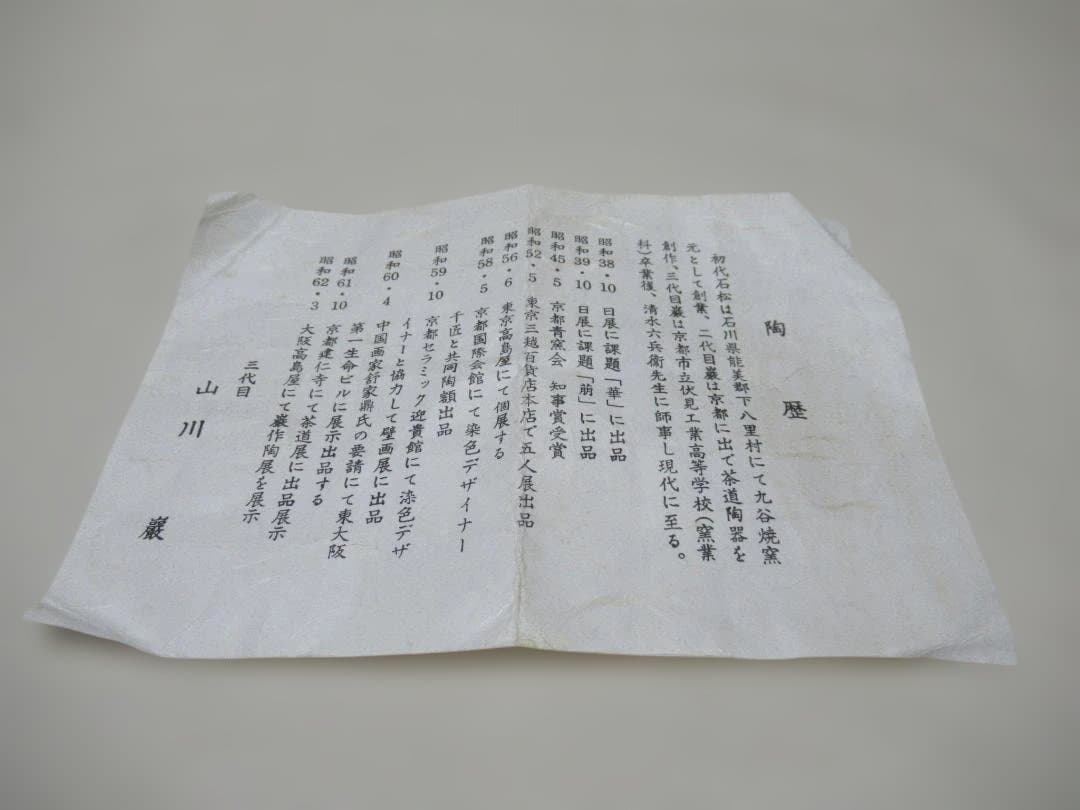 陶歴
初代石松は石川県能美郡下八里村にて九谷焼窯
元として創業、二代目巌は京都に出て茶道陶器を
創作、三代目巌は京都市立伏見工業高等学校(窯業
科)卒業後、清水六兵衞先生に師事し現代に至る。
昭和38・10 日展に課題「華」に出品
昭和39・10 日展に課題「萠」に出品
昭和45・5 京都青窯会 知事賞受賞
昭和52・5 東京三越百貨店本店で五人展出品
昭和56・6 東京高島屋にて個展する
昭和58・5 京都国際会館にて染色デザイナー
千匠と共同陶額出品
昭和59・10 京都セラミック迎貴館にて染色デザ
イナーと協力して壁画展に出品
昭和60・4 中国画家舒家鼎氏の要請にて東大阪
第一生命ビルに展示出品する
昭和61・10 京都建仁寺にて茶道展に出品展示
昭和62・3 大阪高島屋にて巌作陶展を展示
三代目
山川 巖